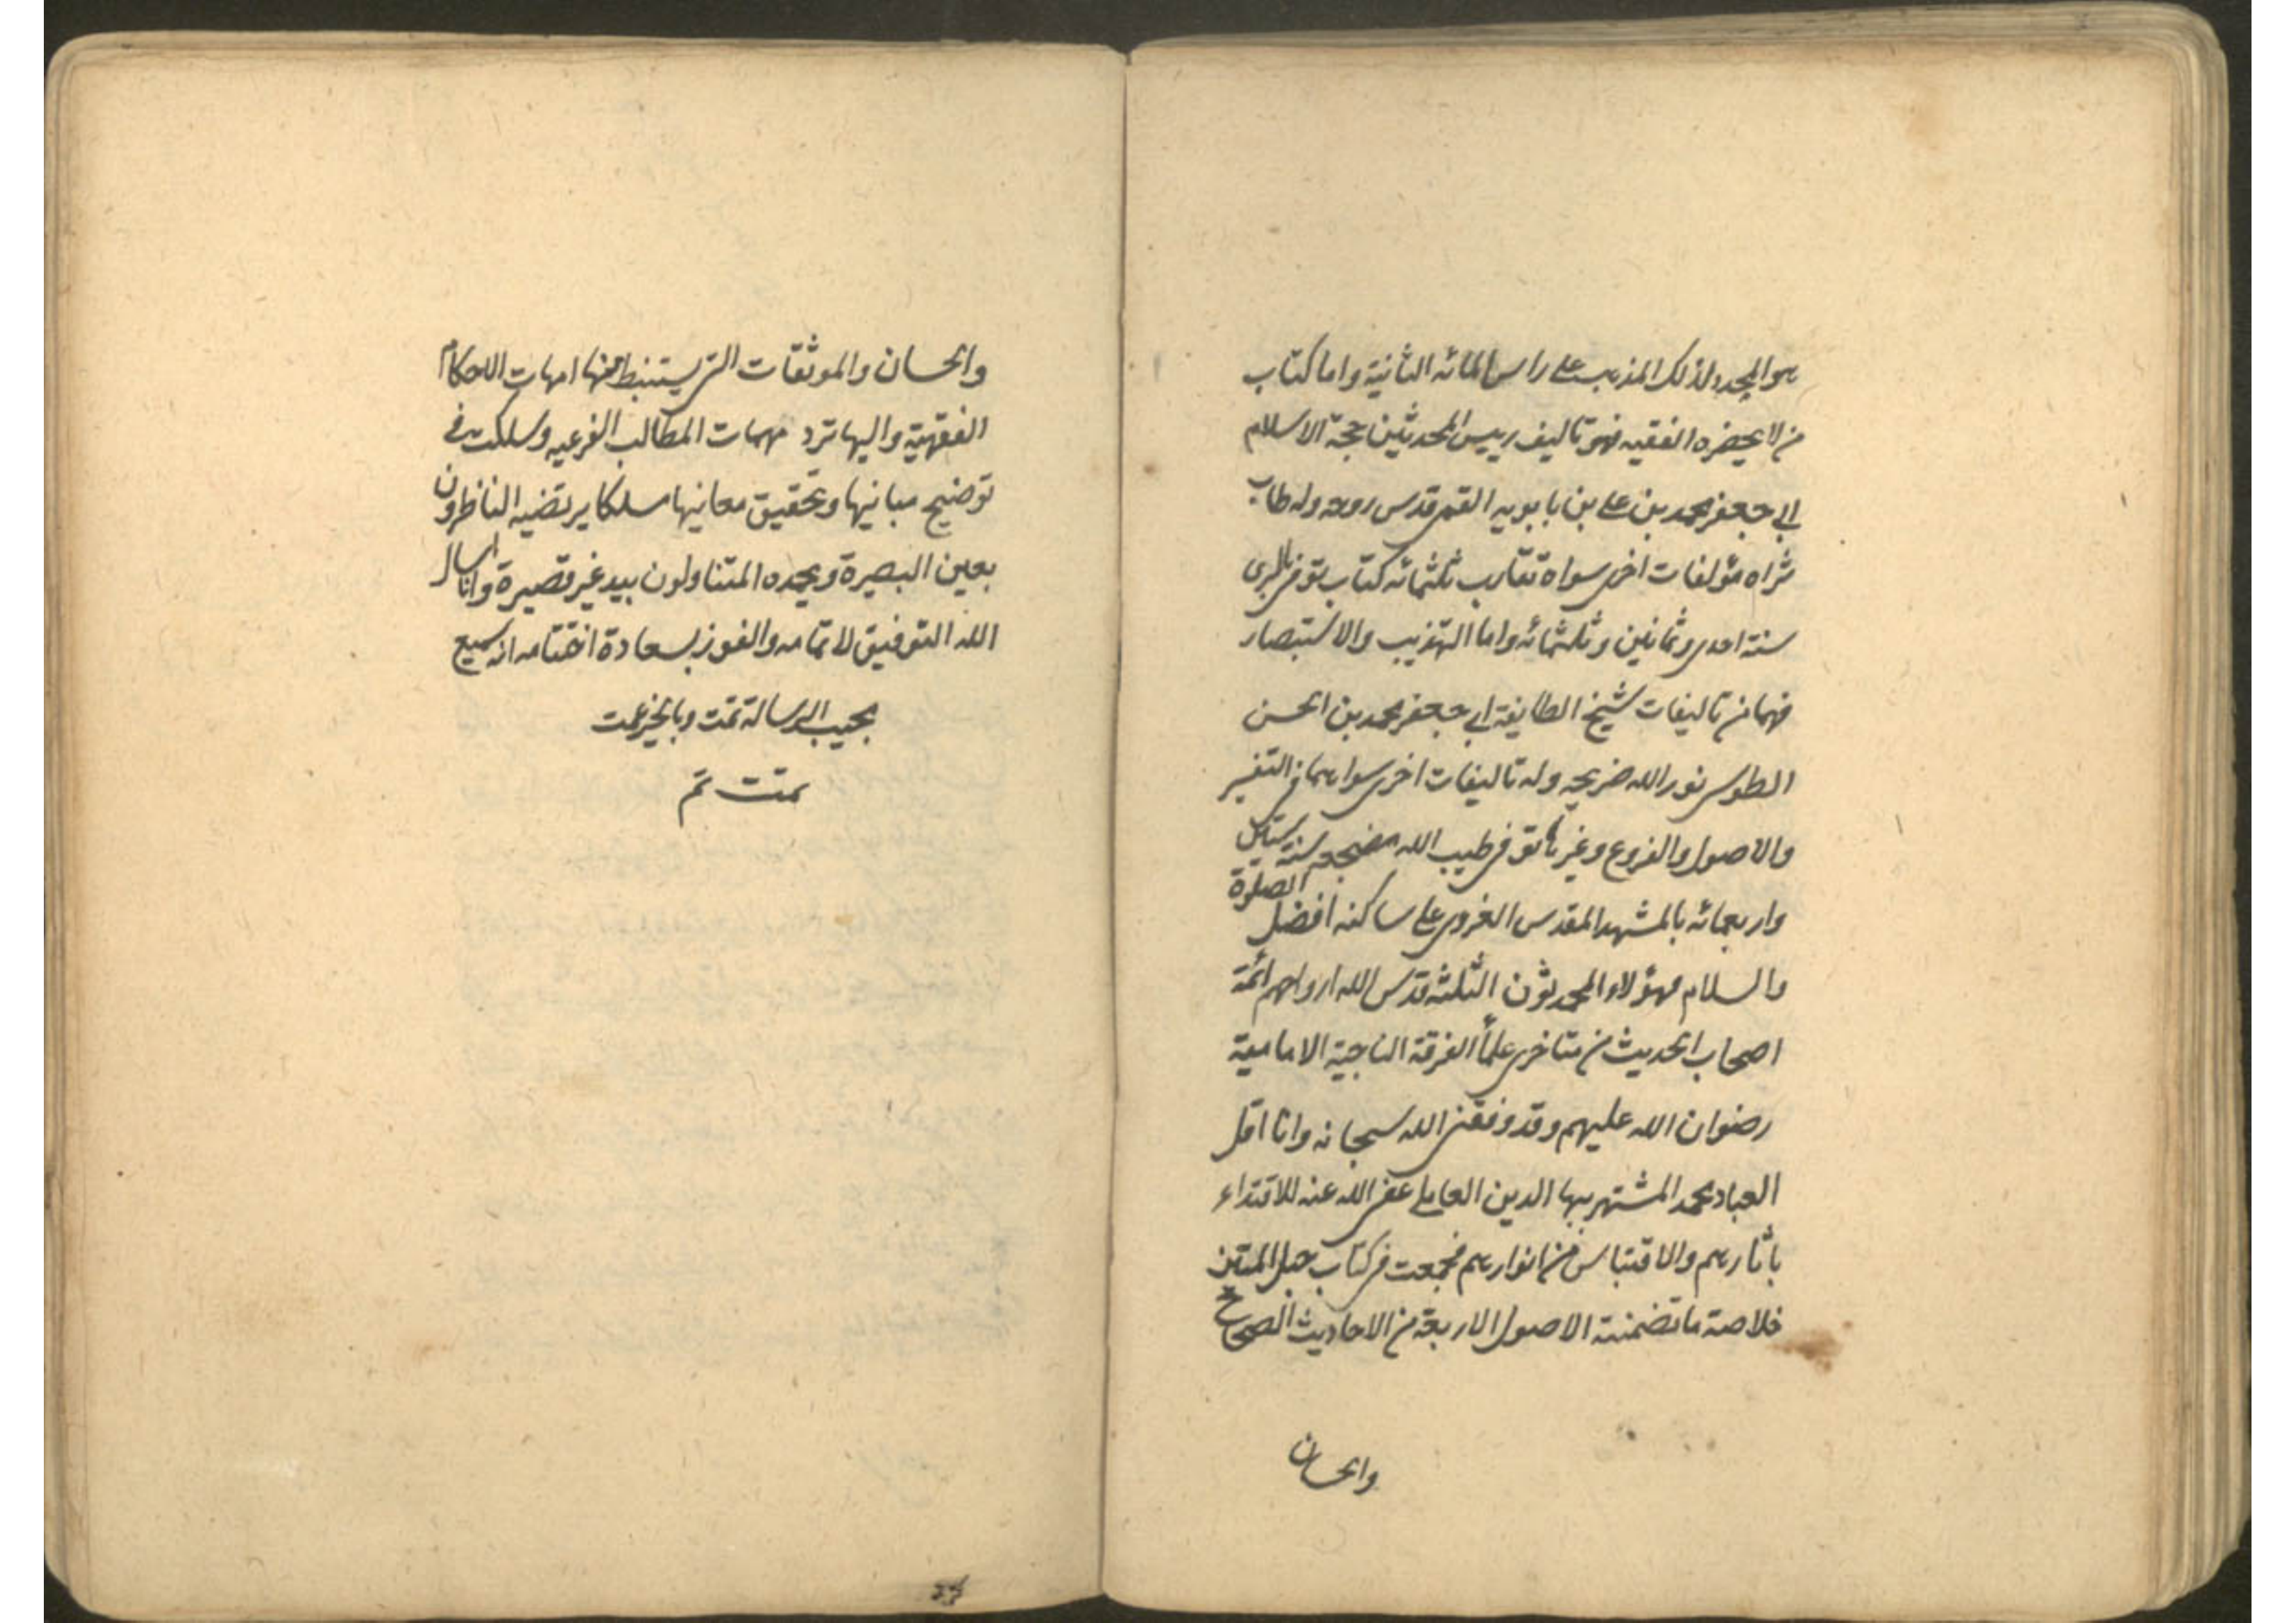 هو المجدد لذلك المذهب على راس المائه الثانية واما كتاب
من لا يحضره الفقيه فهو تاليف رييس المحدثين حجة الاسلام
ابي جعفر محمد بن علي بن بابويه القمى قدس روحه وله طاب
ثراه مؤلفات اخرى سواه تقارب ثلثمائه كتاب توفى بالرى
سنة احدى وثمانين وثلثمائه واما التهذيب والاستبصار
فهما من تاليفات شيخ الطايفة ابي جعفر محمد بن الحسن
الطوسى نور الله ضريحه وله تاليفات اخرى سواهما فى التفسير
والاصول والفروع وغيرها توفى طيب الله مضجعه سنة ستين
واربعمائه بالمشهد المقدس الغروى على ساكنه افضل الصلوة
والسلام فهؤلاء المحمدون الثلثه قدس الله ارواحهم ائمة
اصحاب الحديث من متاخرى علماء الفرقة الناجية الامامية
رضوان الله عليهم وقد وفقنى الله سبحانه وانا اقل
العباد محمد المشتهر ببها الدين العاملي عفى الله عنه للاقتداء
باثارهم والاقتباس من انوارهم فجمعت فى كتاب حبل المتين
خلاصة ما تضمنته الاصول الاربعة من الاحاديث الصحاح
والحسان
والحسان والموثقات التى يستنبط منها امهات الاحكام
الفقهية واليها ترد مهمات المطالب الفرعيه وسلكت فى
توضيح مبانيها وتحقيق معانيها مسلكا يرتضيه الناظرون
بعين البصيرة ويحمده المتناولون بيد غير قصيرة وانا اسال
الله التوفيق لاتمامه والفوز بسعادة اختتامه انه سميع
مجيب الرسالة تمت وبالخير عمت
تمت تم